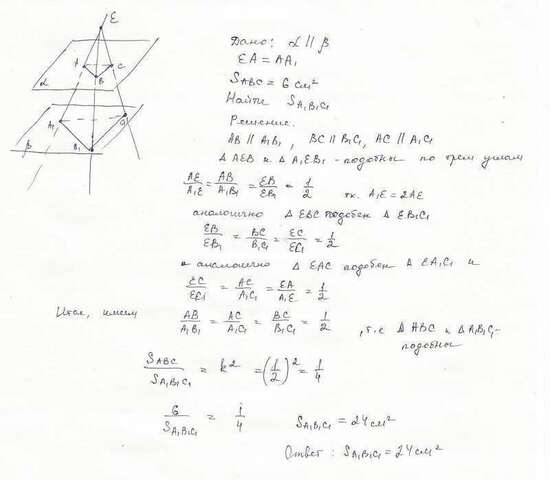 E
A
C
B
α
A₁
C₁
B₁
β
Дано: α || β
EA = AA₁
SABC = 6 см²
Найти SA₁B₁C₁
Решение.
AB || A₁B₁, BC || B₁C₁, AC || A₁C₁
Δ AEB и Δ A₁EB₁ - подобны по трем углам
AE/A₁E = AB/A₁B₁ = EB/EB₁ = 1/2 т.к. A₁E = 2AE
аналогично Δ EBC подобен Δ EB₁C₁
EB/EB₁ = BC/B₁C₁ = EC/EC₁ = 1/2
и аналогично Δ EAC подобен Δ EA₁C₁ и
EC/EC₁ = AC/A₁C₁ = EA/A₁E = 1/2
Итак, имеем AB/A₁B₁ = AC/A₁C₁ = BC/B₁C₁ = 1/2, т.е Δ ABC и Δ A₁B₁C₁ -
подобны
SABC/SA₁B₁C₁ = k² = (1/2)² = 1/4
6/SA₁B₁C₁ = 1/4 SA₁B₁C₁ = 24 см²
Ответ: SA₁B₁C₁ = 24 см²